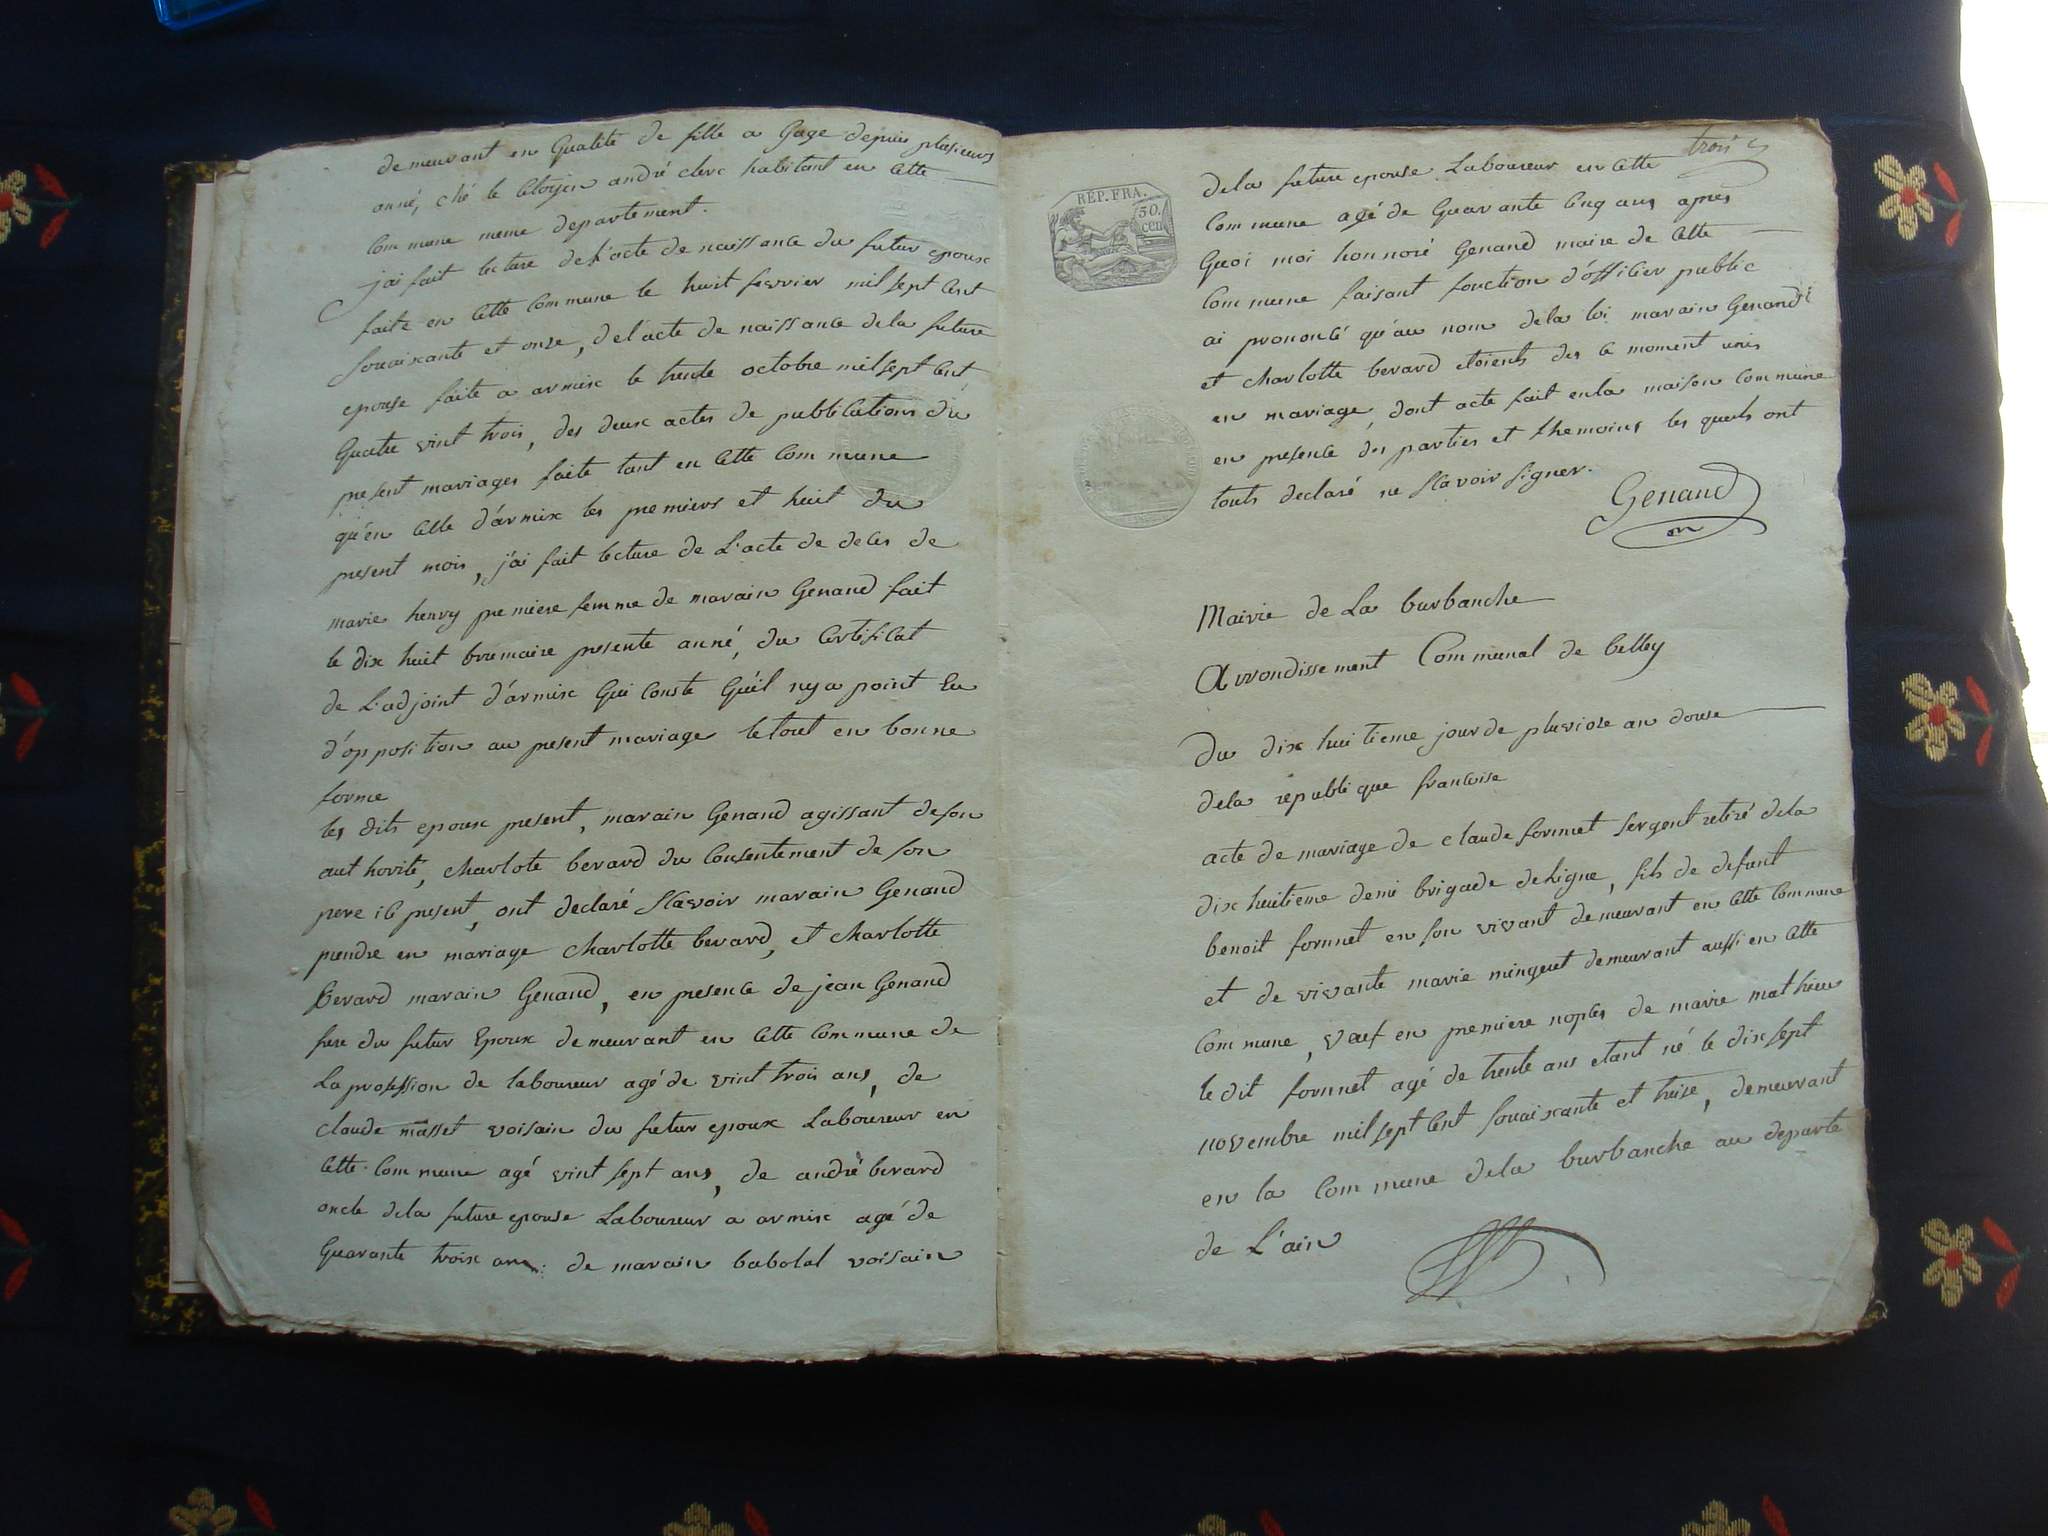 demeurant en Qualité de fille a Gage depuis plusieurs
anné, ché le Citoyen andré clerc habitant en Cette
Commune meme departement.
j'ai fait lecture de l'acte de naissance du futur epoux
faite en Cette Commune le huit fevrier mil sept Cent
souaixante et onze, de l'acte de naissance dela future
epouse faite a armix le trente octobre mil sept Cent
Quatre vint trois, des deux actes de publications du
present mariages faite tant en Cette Commune
qu'en Celle d'armix les premiers et huit du
present mois, j'ai fait lecture de L'acte de deces de
marie henry premiere femme de marain Genand fait
le dix huit brumaire presente anné, du Certificat
de L'adjoint d'armix Qui Conste Qu'il ny a point Eu
d'opposition au present mariage le tout en bonne
forme
les dits epoux present, marain Genand agissant de son
authorité, charlote berard du Consentement de son
pere ici present, ont declaré sçavoir marain Genand
prendre en mariage charlotte berard, et charlotte
berard marain Genand, en presence de jean Genand
frere du futur Epoux demeurant en Cette Commune de
La profession de laboureur agé de vint trois ans, de
claude masset voisain du futur epoux Laboureur en
Cette Commune agé vint sept ans, de andré berard
oncle dela future epouse Laboureur a armix agé de
Quarante trois ans. de marain babolat voisain
trois
REP. FRA.
50.
cen
dela future epouse Laboureur en Cette
Commune agé de Quarante Cinq ans apres
Quoi moi honnoré Genand maire de Cette
Commune faisant fonction d'officier public
ai prononcé qu'au nom dela loi marain Genand
et charlotte berard etoients des ce moment unis
en mariage, dont acte fait en la maison Commune
en presence des parties et themoins les quels ont
touts declaré ne sçavoir signer.
Genand
Mairie de La burbanche
Arrondissement Communal de belley
Du dix huitieme jour de pluviose an douse
dela republique francoise
acte de mariage de claude fornnet sergent retiré dela
dix huitieme demi brigade de Ligne, fils de defunt
benoit fornnet en son vivant demeurant en Cette Commune
et de vivante marie minguet demeurant aussi en Cette
Commune, veuf en premiere noples de marie mathieu
le dit fornnet agé de trente ans etant né le dix sept
novembre mil sept Cent souaixante et treise, demeurant
en la Commune dela burbanche au departe
de L'ain